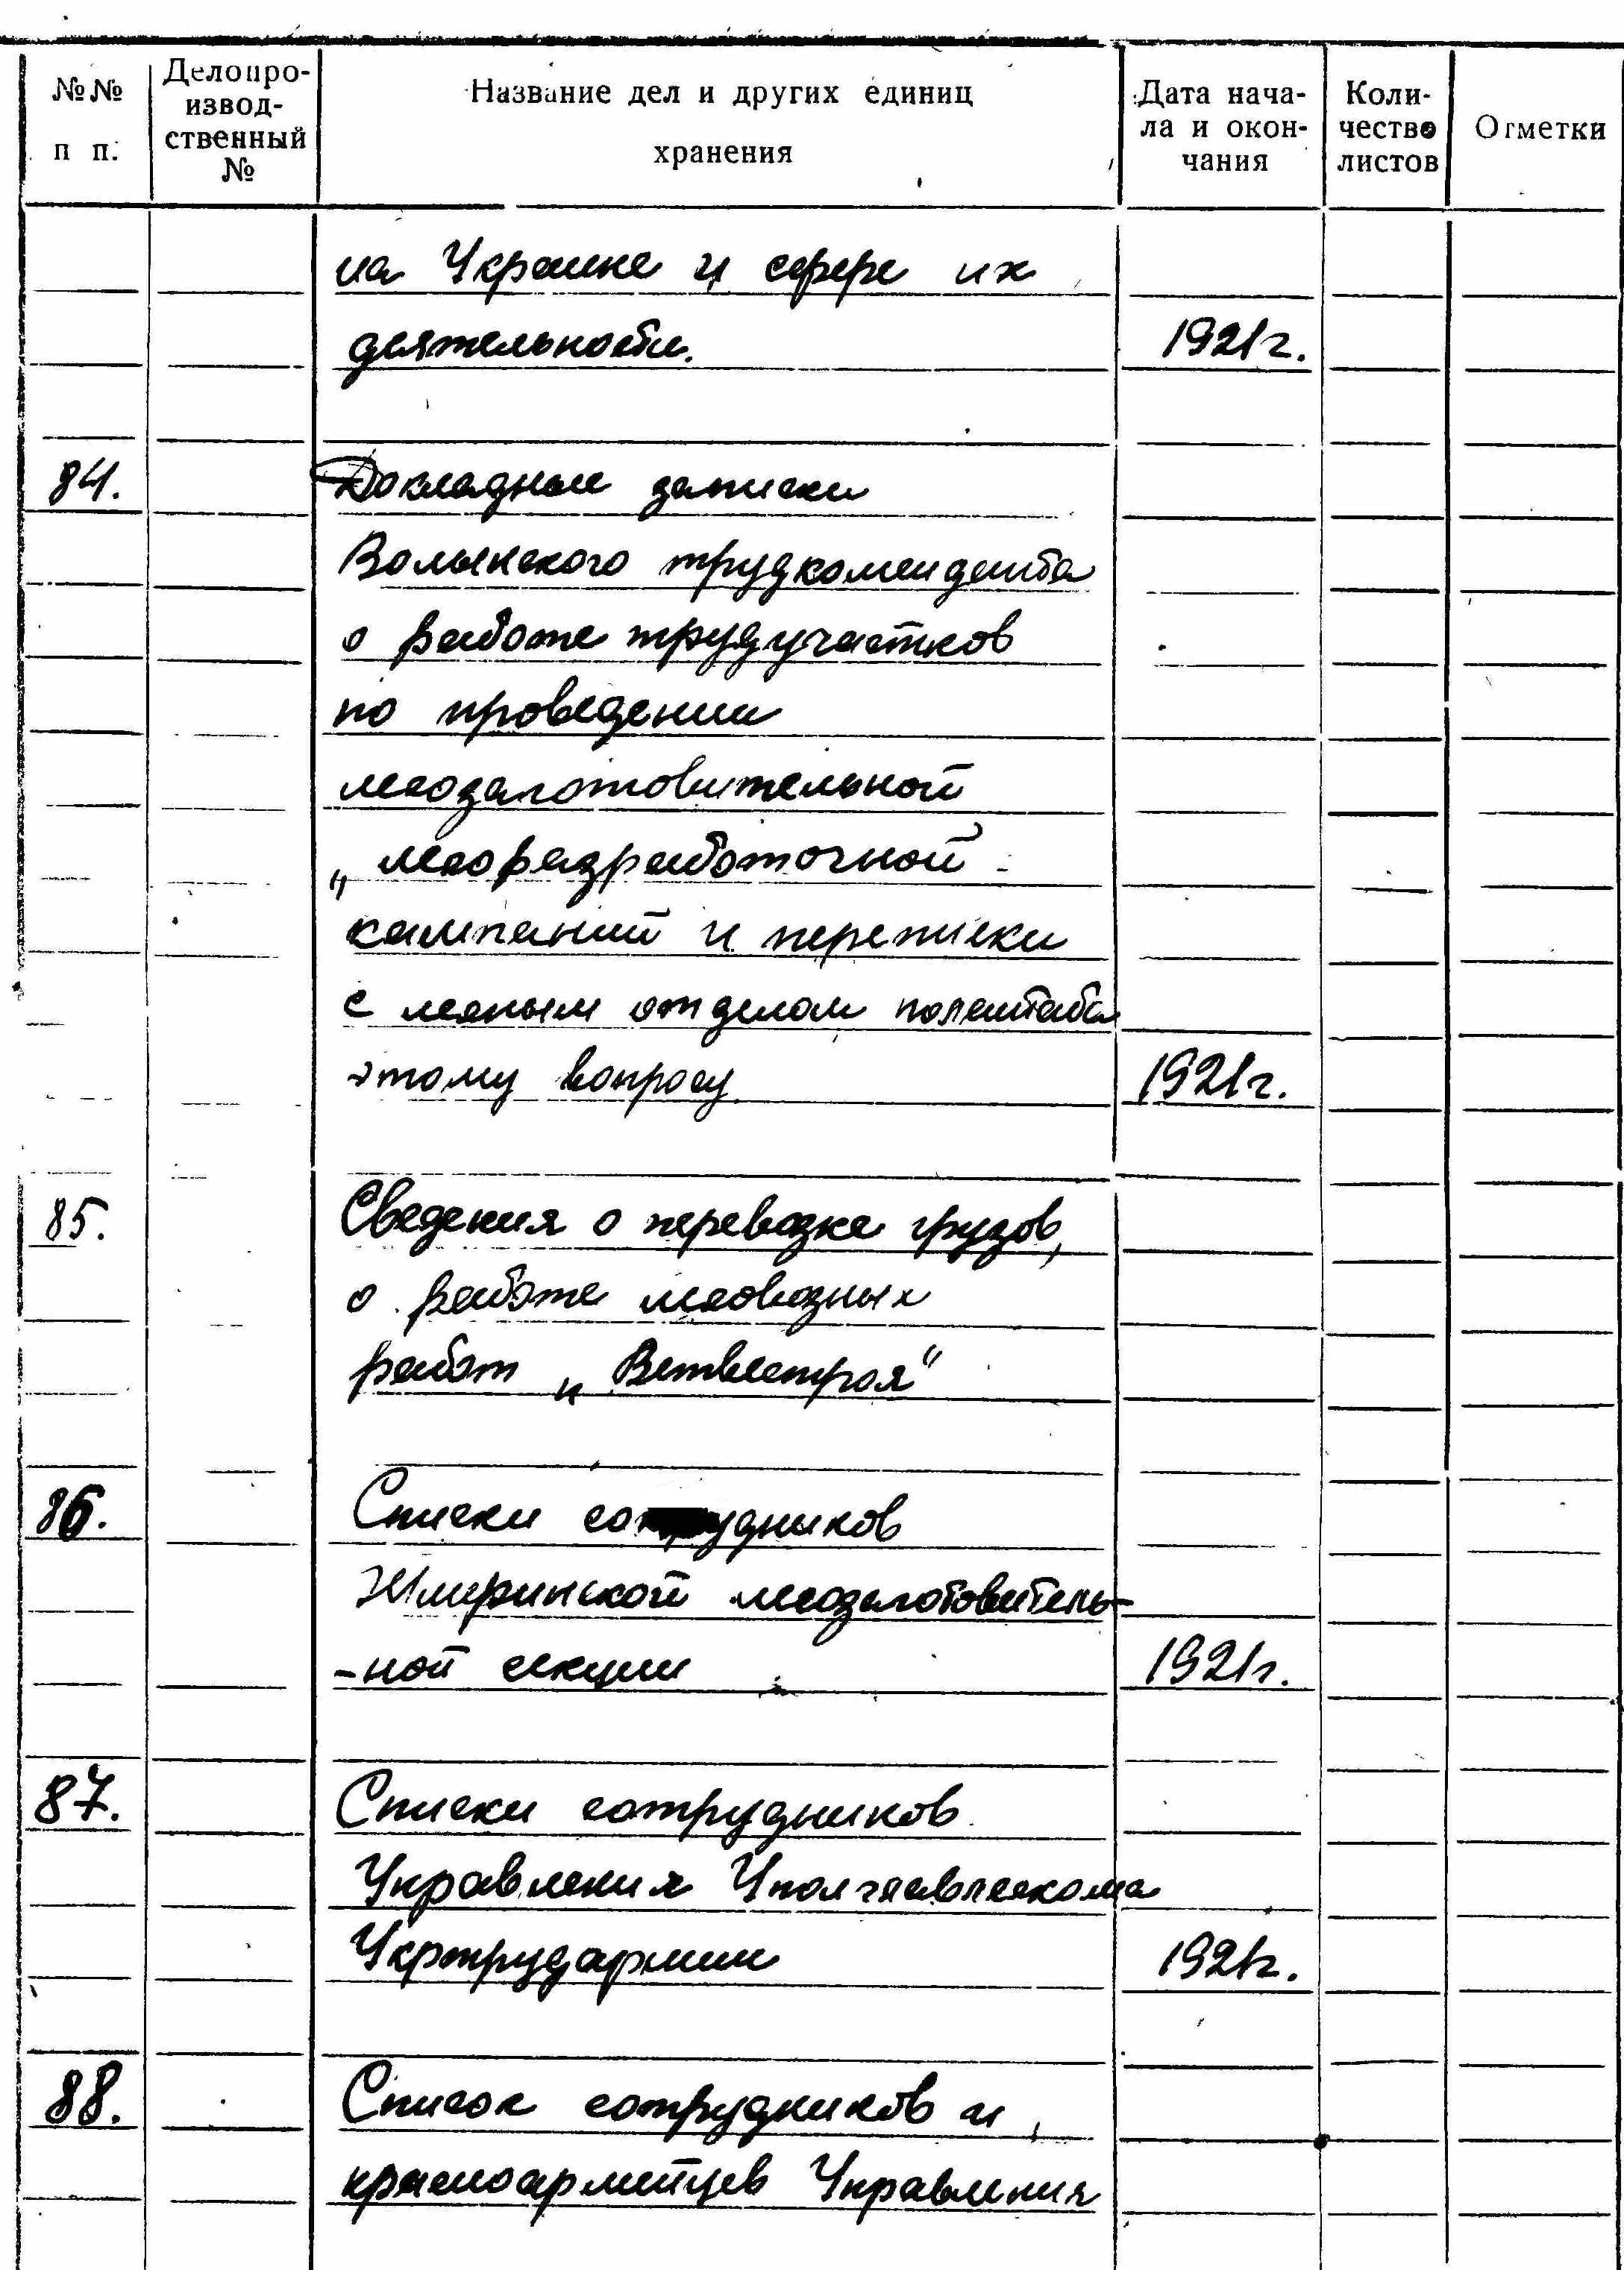 №№ п п.
Делопро-
извод-
ственный
№
Название дел и других единиц
хранения
Дата нача-
ла и окон-
чания
Коли-
чество
листов
Отметки
на Украине и сфере их
деятельности. 1921г.
84. Докладные записки
Волынского трудкоменданта
о работе трудучастков
по проведении
лесозаготовительной
„ лесоразработочной
кампаний и переписки
с лесным отделом
этому вопросу 1921г.
85. Сведения о перевозке грузов,
о работе лесовозных
работ „Ветвестроя"
86. Списки сотрудников
Жмеринской лесозаготовитель-
-ной секции 1921г.
87. Списки сотрудников
Управления
Укртрудармии 1921г.
88. Список сотрудников и
красноармейцев Управления